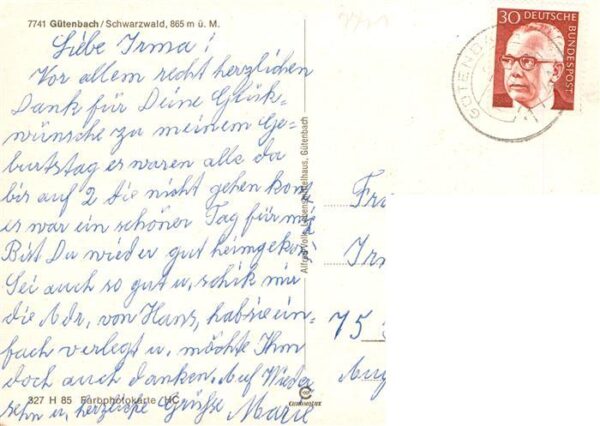 7741 Gütenbach/Schwarzwald, 865 m ü. M.
Liebe Irma!
Vor allem recht herzlichen
Dank für Deine Glück-
wünsche zu meinem Ge-
burtstag es waren alle da
bis auf 2 die nicht gehen konn
es war ein schöner Tag für mi
Bist Du wieder gut heimgeko
Sei auch so gut u, schik mir
die Adr, von Hans, hab sie ein-
fach verlegt u, möchte Ihm
doch auch danken. Auf Wieder
sehn u, herzliche Grüße Marie
327 H 85 Farbphotokarte HC
Alfred Volk, Lebensmittelhaus, Gütenbach
30 DEUTSCHE BUNDESPOST
GÜTENB
Fr
Ir
75
Aug